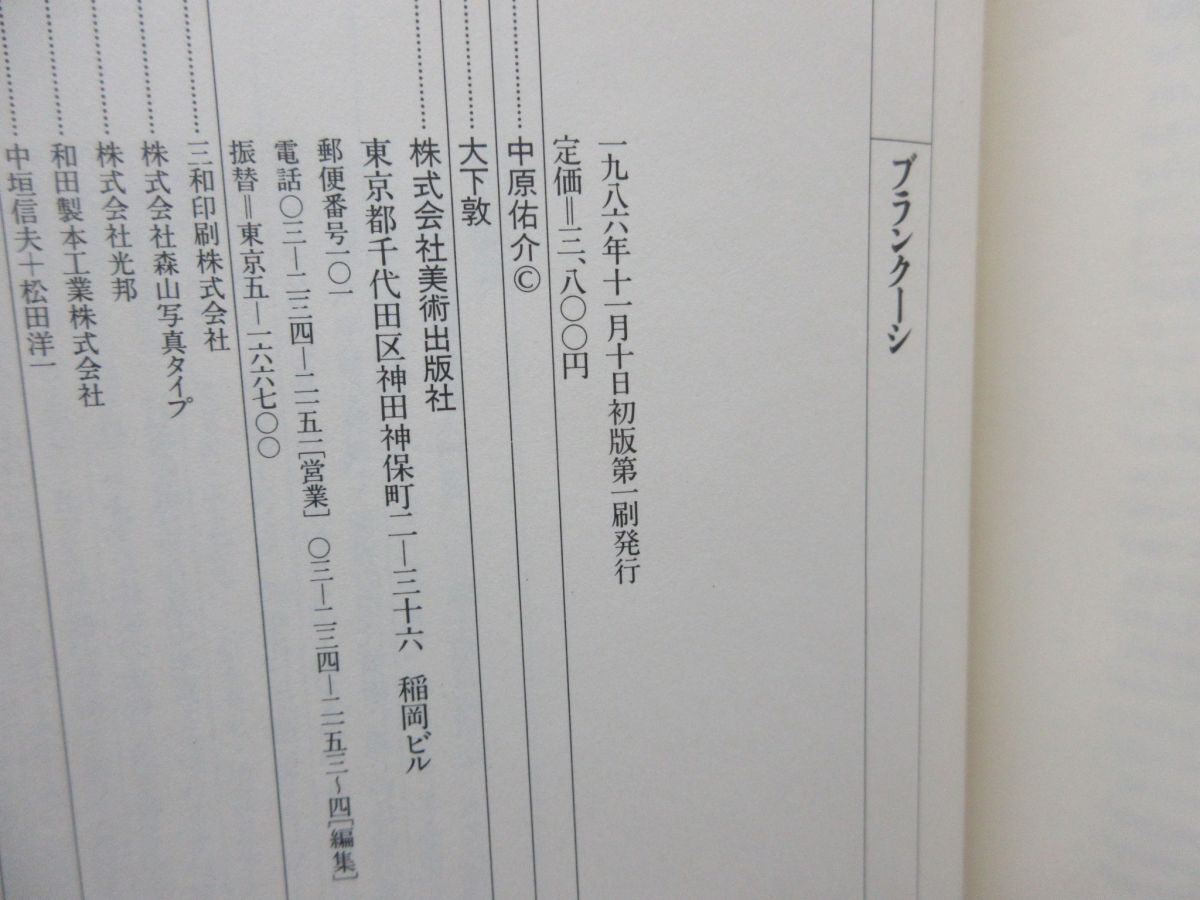 ブランクーシ
一九八六年十一月十日初版第一刷発行
定価＝三、八〇〇円
中原佑介©
大下敦
株式会社美術出版社
東京都千代田区神田神保町二―三十六　稲岡ビル
郵便番号一〇一
電話〇三―二三四―二一五一［営業］　〇三―二三四―二一五三～四［編集］
振替＝東京五―一六六七〇〇
三和印刷株式会社
株式会社森山写真タイプ
株式会社光邦
和田製本工業株式会社
中垣信夫＋松田洋一